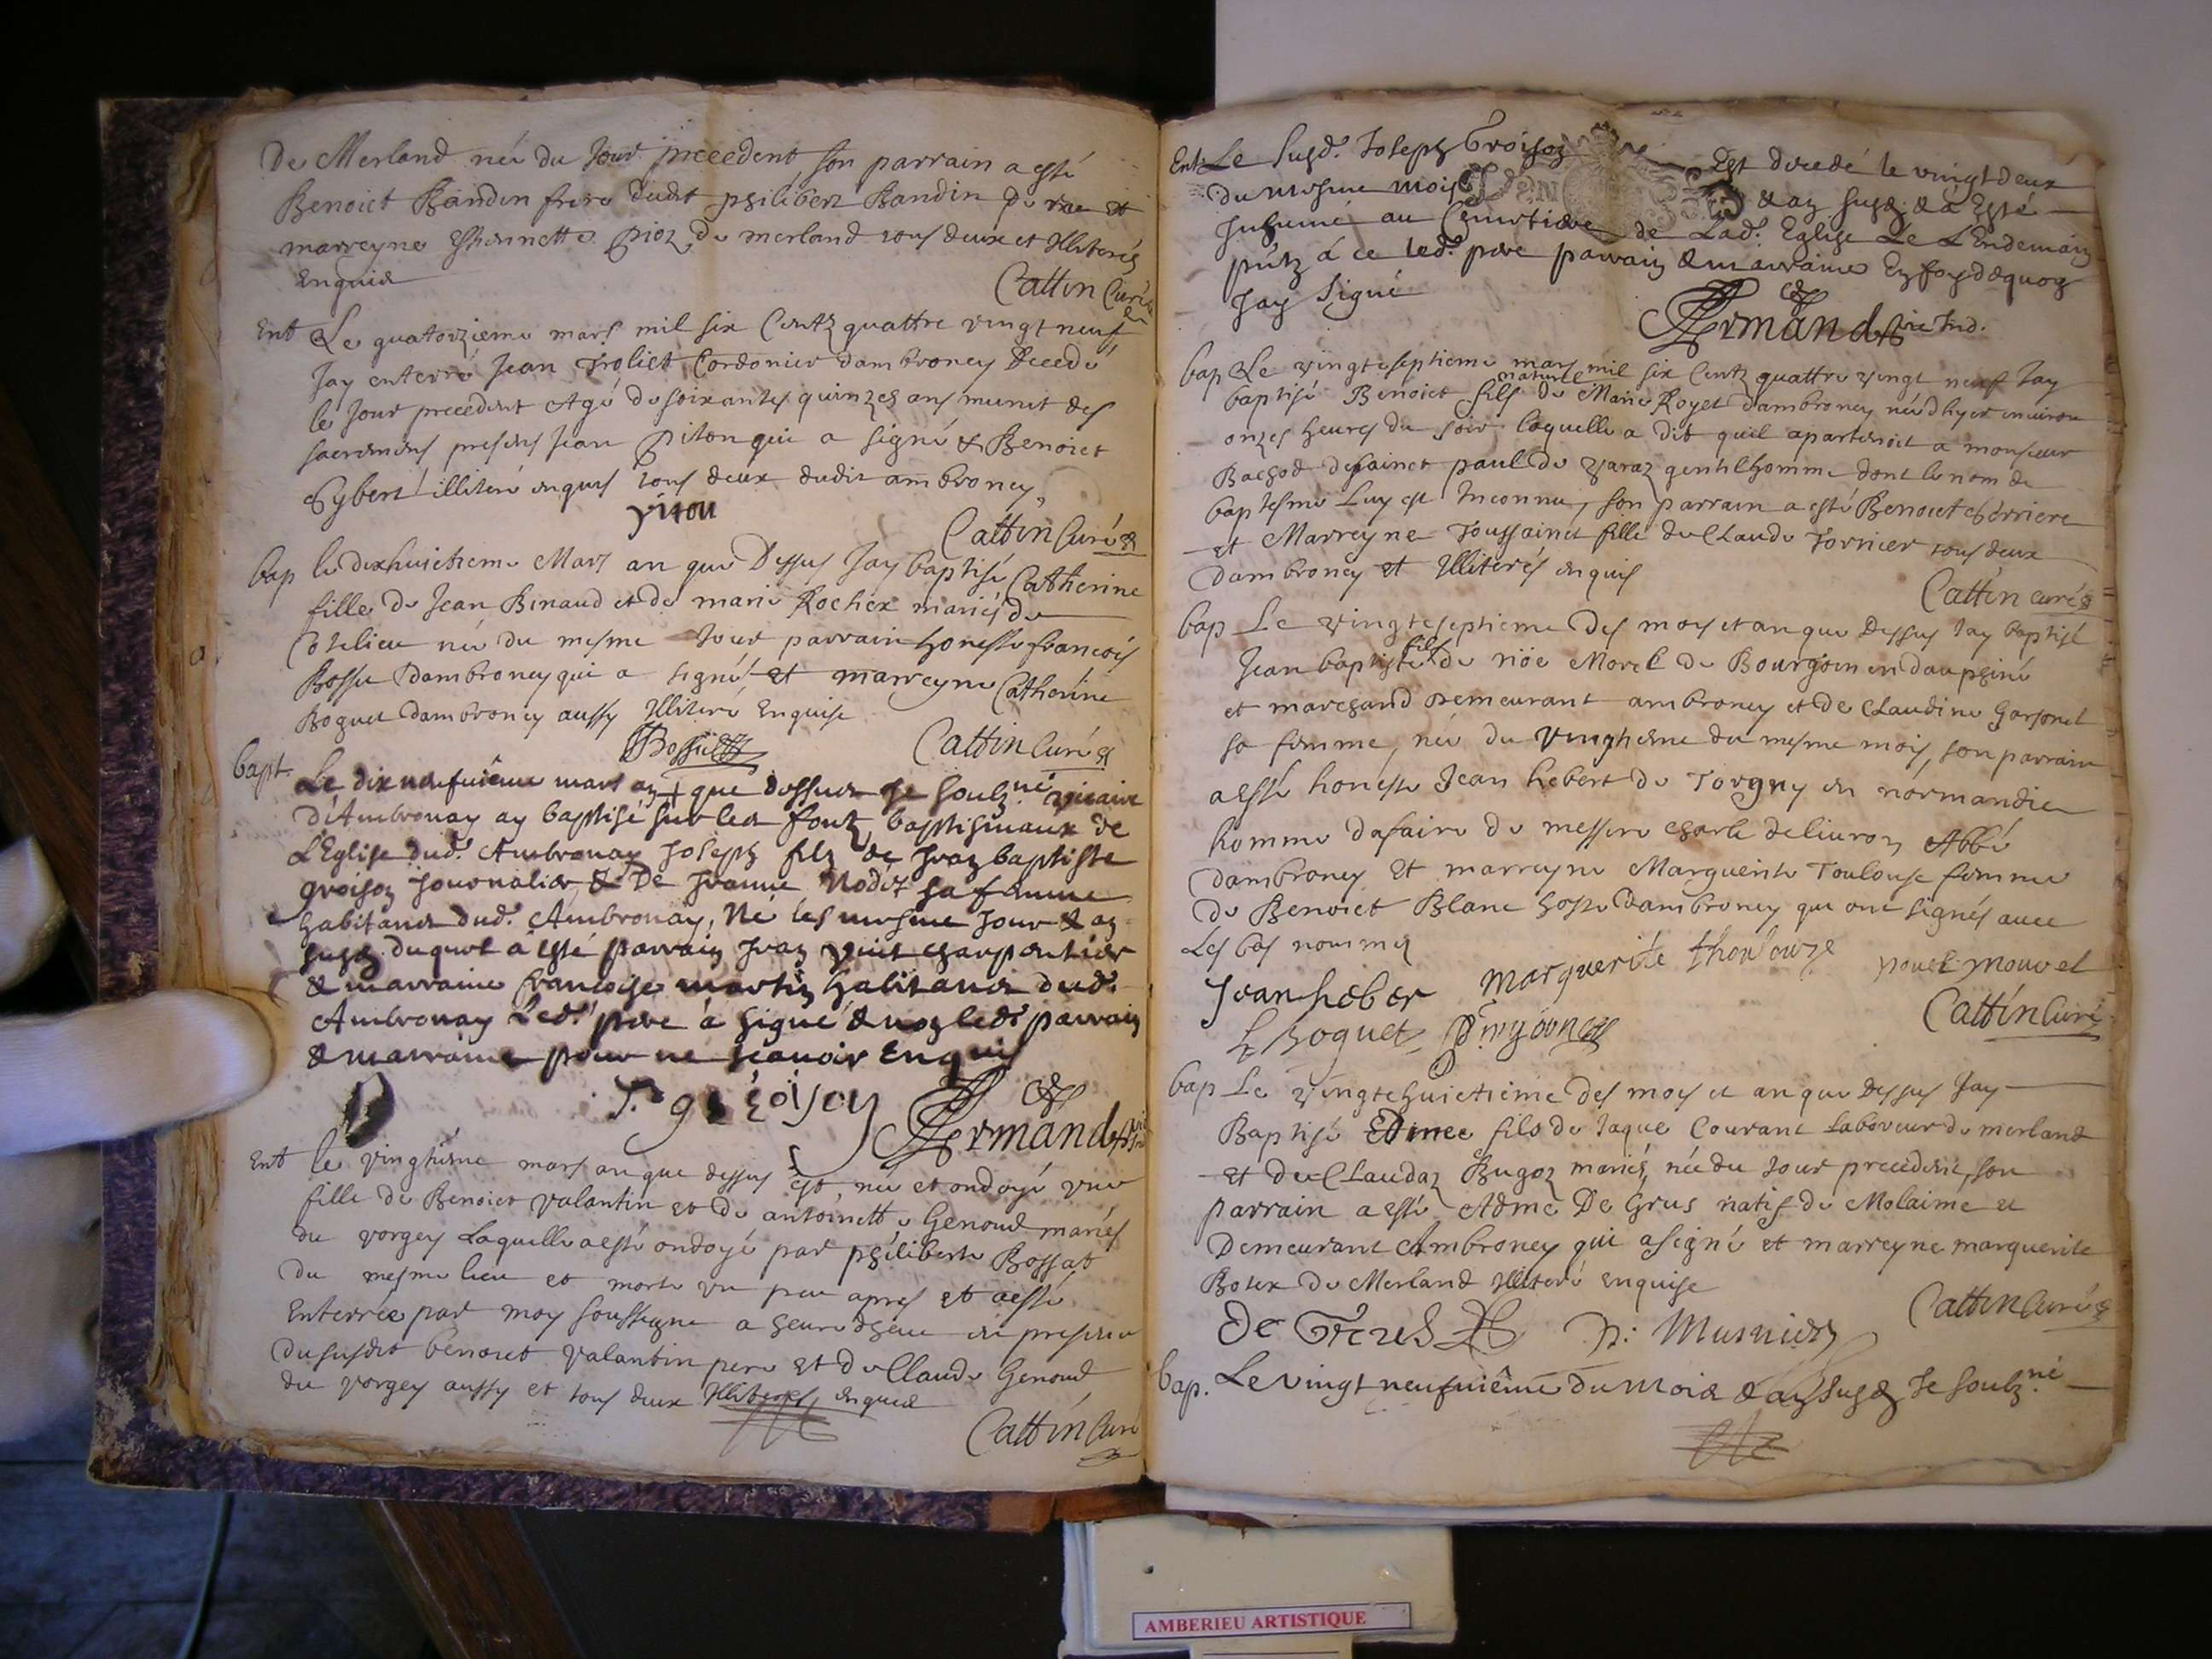 De Merland née du Jour precedent son parrain a esté
Benoict Bandin frere dudit philibert Bandin et
marreyne Ehonnette de merland tous deux et Illiterés
Enquis
Cattin Curé
Ent Le quatorzieme mars mil six Centz quattre vingt neuf
Jay enterré Jean Troliet Cordonier dambroney Decedé
le Jour precedent Agé de soixantes quinzes ans munit des
sacremens presens Jean piton qui a signé & Benoict
Gybert illiteré enquis tous deux dudit ambroney
piton
Cattin Curé
bap le dixhuictieme Mars an que Dessus Jay baptisé Catherine
fille de Jean Binaud et de marie Rochex mariés de
Cotelieu née du mesme Jour parrain honeste francois
Bossu Dambroney qui a signé et marreyne Catherine
Boguet dambroney aussy Illiteré Enquise
Bossu
Cattin Curé
bapt. Le dix neufuiéme mars an + que dessus Je soubz.né vicaire
d'Ambronay ay baptisé sur les fontz baptismaux de
L'Eglise dud.t Ambronay Joseph filz de Jean baptiste
groison Journalier & De Jeanne Nodet sa femme
habitans dud.t Ambronay, Né les mesme Jour & an
susd. duquel a esté parrain Jean charpentier
& marraine francoise martin habitans dud.t
Ambronay Led.t pere a signé & non led.t parrain
& marraine pour ne scauoir Enquis
J. groison
Armand
Ent le vingtiéme mars an que dessus est née et ondoyé une
fille de Benoict valantin et de antoinette Genoud mariés
du vorgey Laquelle a esté ondoyé par philiberte Bossat
du mesme lieu et morte un peu apres et a esté
Enterrée par moy soussigne a heure en presence
du susdit benoict valantin pere et de Claude Genoud
du vorgey aussy et tous deux Illiteres enquis
Cattin Curé
Ent. Le susd.t Joseph Groison Est decedé le vingt deux
du mesme mois & an susd. & a Esté
Inhumé au Cimetiere de Lad.t Eglise Le L'Endemain
pntz à ce led.t pere parrain & marraine En foy dequoy
Jay signé
Armand vic Ind.
bap Le vingteseptieme mars mil six Centz quattre vingt neuf Jay
baptisé Benoict fils naturel de Marie Royet dambroney né dhyer enuiron
onzes heures du soir laquelle a dit quil apartenoit a monsieur
Bachod de sainct paul de varaz gentilhomme dont le nom de
baptesme Luy est Inconnu, son parrain a esté Benoict
et Marreyne Toussainct fille de Claude Fornier tous deux
Dambroney et Illiterés enquis
Cattin curé
bap Le vingteseptieme des mois et an que Dessus Jay baptisé
Jean baptiste fils de nöe Morel de Bourgoin en daupginé
et marchand Demeurant ambroney et de Claudine
sa femme, né du vingtiesme du mesme mois, son parrain
a esté honeste Jean hebert de Torgny en normandie
homme dafaire de messire charle deliuron Abbé
Dambroney Et marreyne Marguerite Toulouse femme
de Benoict Blanc hoste Dambroney qui ont signés auec
Les bas nommés
Jean heber marguerite thoulouze nouel mouvel
Boguet
Cattin Curé
bap Le vingtehuictieme des mois et an que dessus Jay
Baptisé Edmee fils de Jaque Courant Laboureur de merland
et de Claudaz Bugoz mariés, née du Jour precedent, son
parrain a esté Admé De Grus natif de Molaime et
Demeurant Ambroney qui a signé et marreyne marguerite
Botex de Merland Illiteré enquise
Cattin Curé
De Greus p: Musnier
bap. Le vingt neufuiéme du mois & an susd. Je soubz.né
AMBERIEU ARTISTIQUE